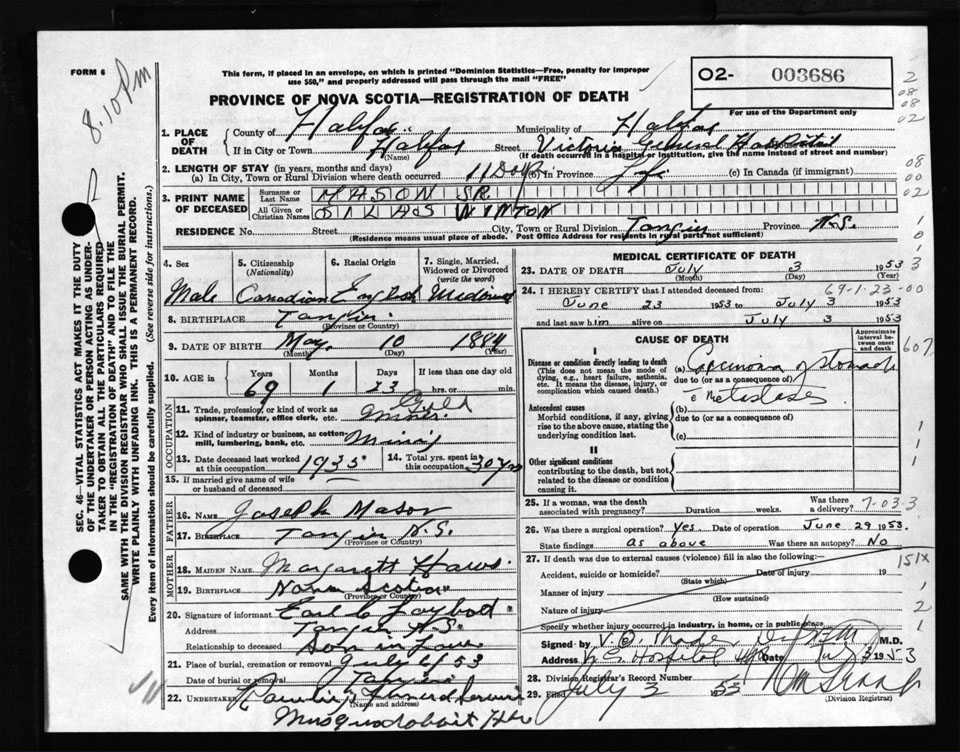 FORM 6
8.10 Pm
This form, if placed in an envelope, on which is printed "Dominion Statistics—Free, penalty for improper
use $50," and properly addressed will pass through the mail "FREE"
O2- 003686
For use of the Department only
PROVINCE OF NOVA SCOTIA—REGISTRATION OF DEATH
1. PLACE OF DEATH
County of Halifax
Municipality of Halifax
If in City or Town Halifax
(Name)
Street Victoria General Hospital
(If death occurred in a hospital or institution, give the name instead of street and number)
2. LENGTH OF STAY (in years, months and days)
(a) In City, Town or Rural Division where death occurred 11 Days (b) In Province Life (c) In Canada (if immigrant)
3. PRINT NAME OF DECEASED
Surname or Last Name MASON SR.
All Given or Christian Names WINTON
RESIDENCE No. Street City, Town or Rural Division Tangier Province N.S.
(Residence means usual place of abode. Post Office Address for residents in rural parts not sufficient)
4. Sex
Male
5. Citizenship
(Nationality)
Canadian
6. Racial Origin
English
7. Single, Married,
Widowed or Divorced
(write the word)
Widowed
8. BIRTHPLACE Tangier
(Province or Country)
9. DATE OF BIRTH May 10 1884
(Month) (Day) (Year)
10. AGE in
Years Months Days If less than one day old
69 1 23 hrs. or min.
OCCUPATION
11. Trade, profession, or kind of work as
spinner, teamster, office clerk, etc. Gold
Miner
12. Kind of industry or business, as cotton
mill, lumbering, bank, etc. Mining
13. Date deceased last worked
at this occupation 1935
14. Total yrs. spent in
this occupation 30 yrs
15. If married give name of wife
or husband of deceased
FATHER
16. NAME Joseph Mason
17. BIRTHPLACE Tangier N.S.
(Province or Country)
MOTHER
18. MAIDEN NAME Margarett Haws
19. BIRTHPLACE Nova Scotia
(Province or Country)
20. Signature of informant Earl C
Address Tangier N.S.
Relationship to deceased Son in Law
21. Place of burial, cremation or removal July 6/53
Date of burial or removal Tangier
22. UNDERTAKER
(Name and address)
Musquodoboit Hbr
MEDICAL CERTIFICATE OF DEATH
23. DATE OF DEATH July 3 1953
(Month) (Day) (Year)
24. I HEREBY CERTIFY that I attended deceased from: 69-1-23-00
June 23 1953 to July 3 1953
and last saw him alive on July 3 1953
CAUSE OF DEATH
Approximate
interval between
onset
and death
607
I
Disease or condition directly leading to death
(This does not mean the mode of
dying, e.g., heart failure, asthenia,
etc. It means the disease, injury, or
complication which caused death.)
(a) Carcinoma of stomach
due to (or as a consequence of)
c metastases
Antecedent causes
Morbid conditions, if any, giving
rise to the above cause, stating the
underlying condition last.
(b)
due to (or as a consequence of)
(c)
II
Other significant conditions
contributing to the death, but not
related to the disease or condition
causing it.
25. If a woman, was the death
associated with pregnancy? Duration weeks. Was there
a delivery? 7-03-3
26. Was there a surgical operation? Yes. Date of operation June 29 1953.
State findings as above Was there an autopsy? No
27. If death was due to external causes (violence) fill in also the following:—
151X
Accident, suicide or homicide? Date of injury 19
(State which)
Manner of injury
(How sustained)
Nature of injury
Specify whether injury occurred in industry, in home, or in public place
Signed by M.D.
Address V G Hospital Hfx Date July 3 1953
28. Division Registrar's Record Number
29. Filed July 3 53
(Division Registrar)
SEC. 46—VITAL STATISTICS ACT MAKES IT THE DUTY
OF THE UNDERTAKER OR PERSON ACTING AS UNDERTAKER
TO OBTAIN ALL THE PARTICULARS REQUIRED
IN THE "REGISTRATION OF DEATH" AND TO FILE THE
SAME WITH THE DIVISION REGISTRAR WHO SHALL ISSUE THE BURIAL PERMIT.
WRITE PLAINLY WITH UNFADING INK. THIS IS A PERMANENT RECORD.
Every item of information should be carefully supplied. (See reverse side for instructions.)